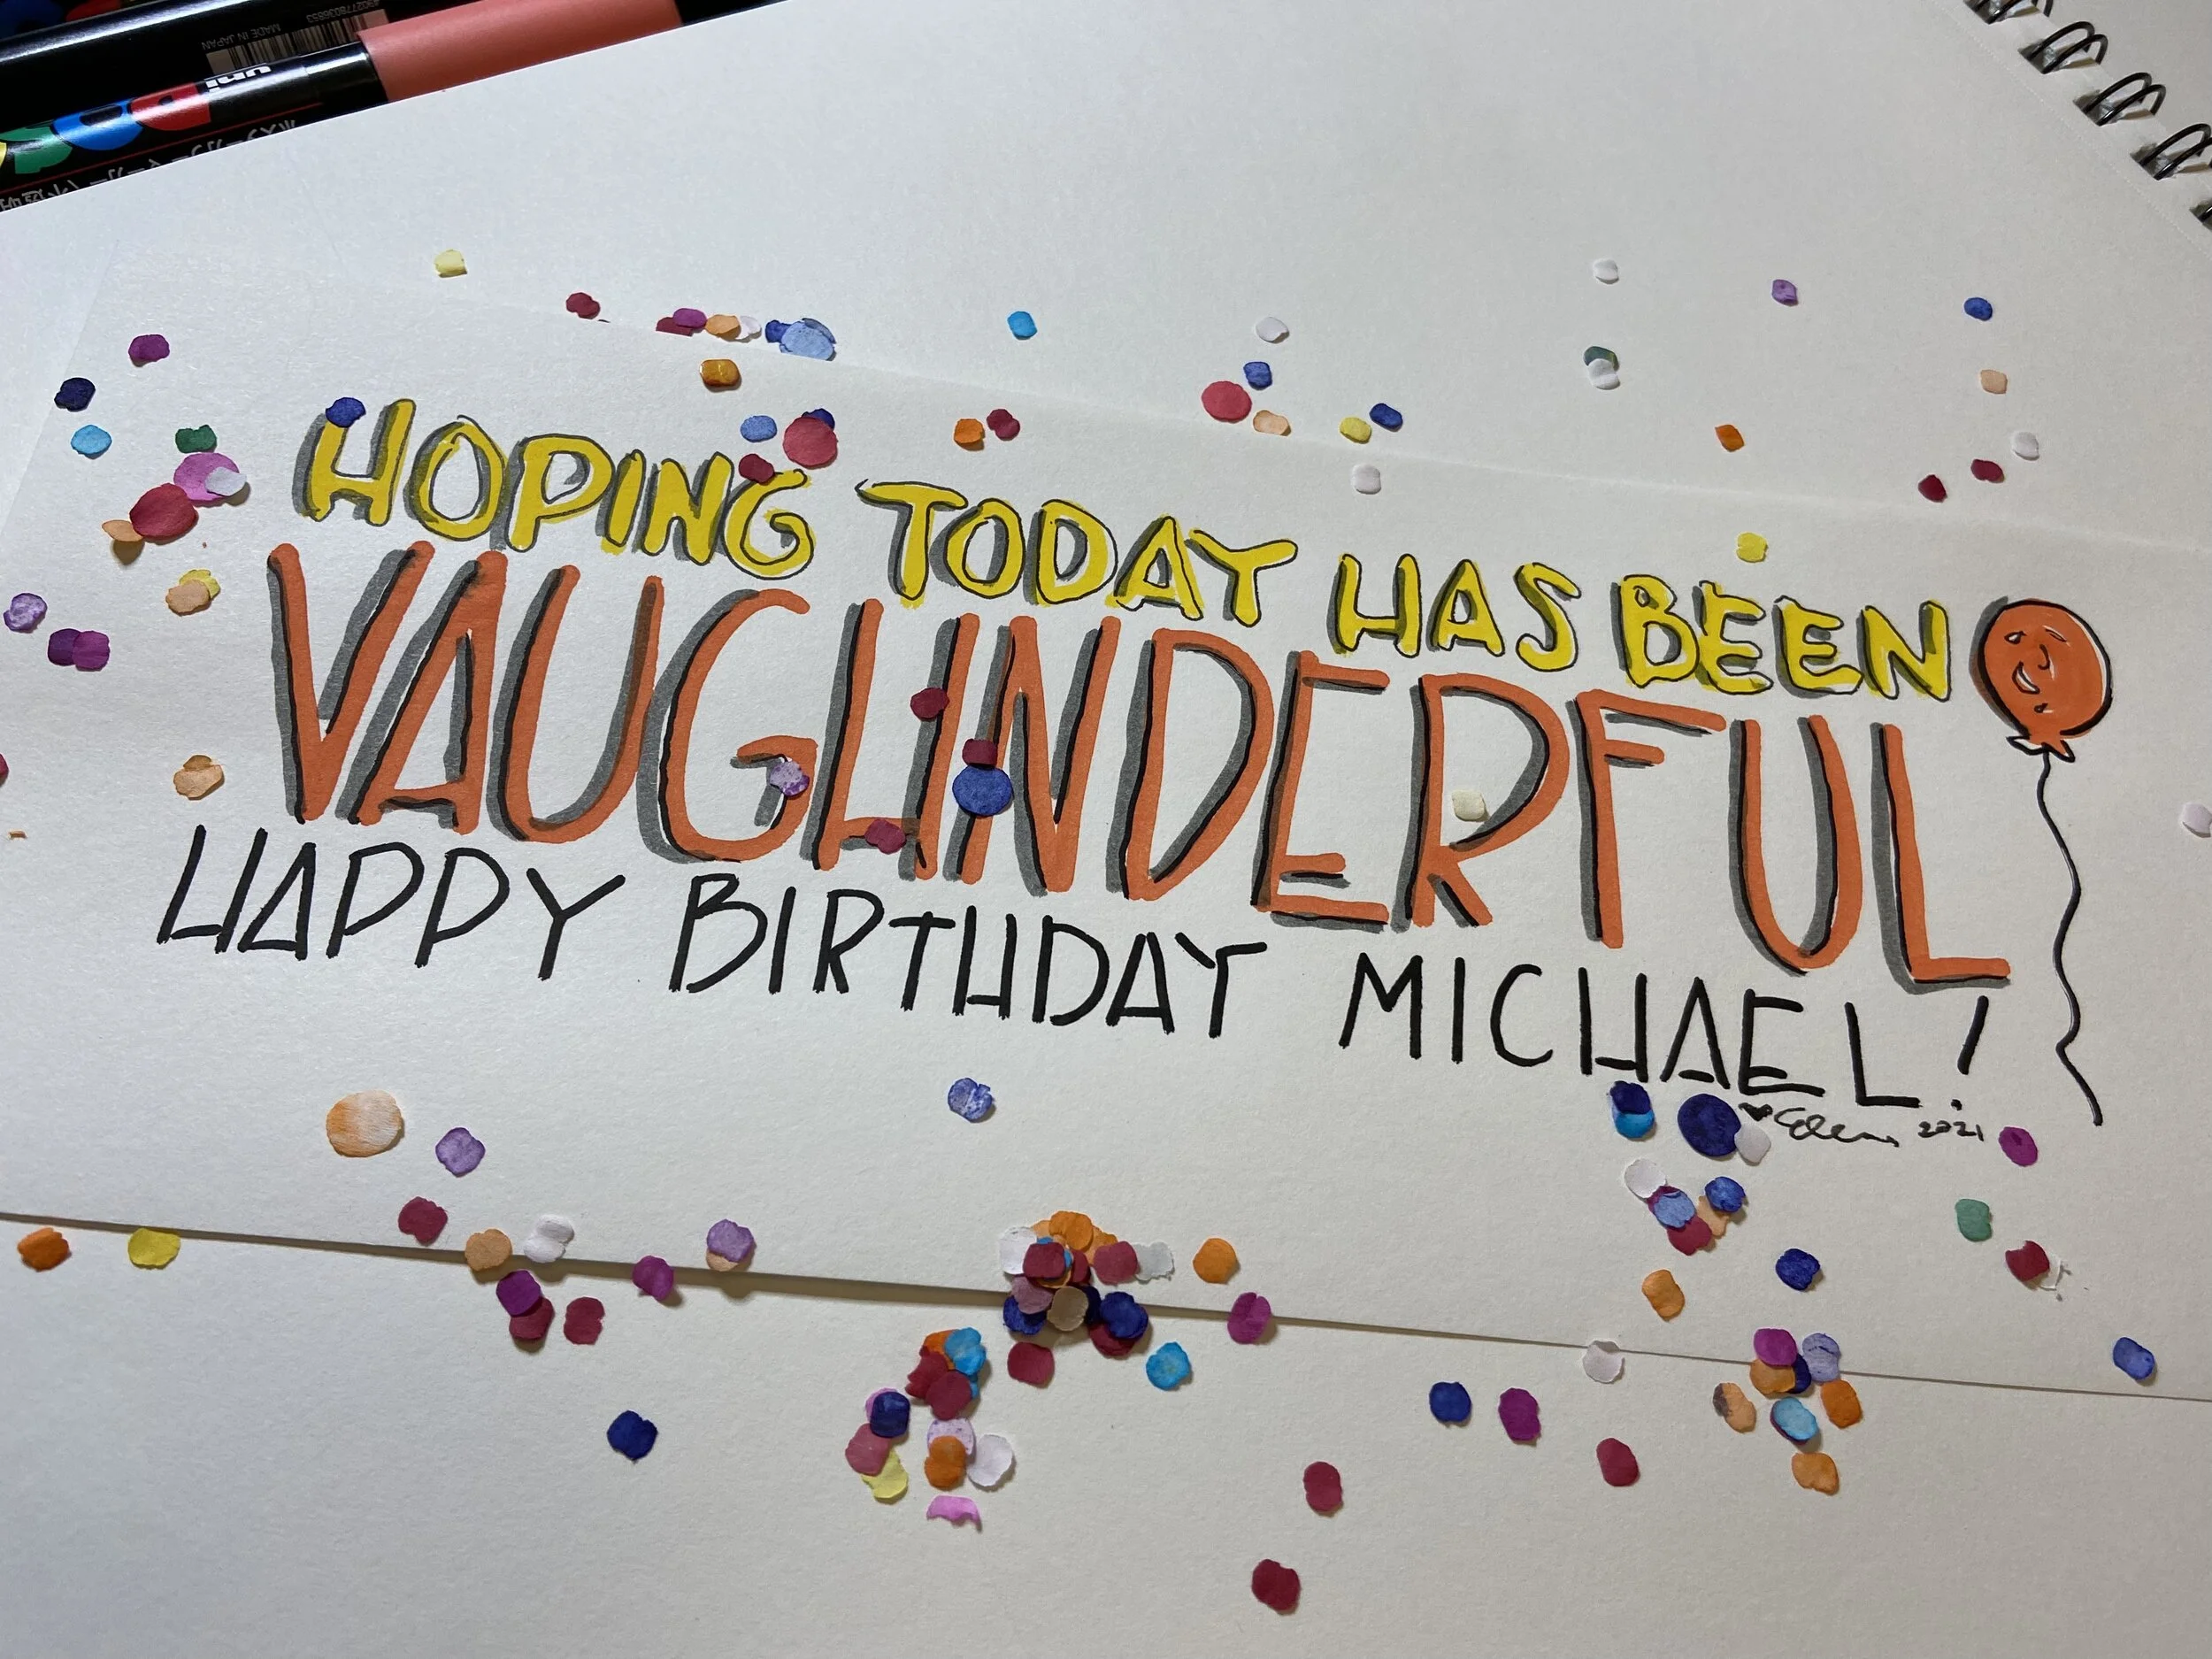 uni
MADE IN JAPAN
HOPING TODAY HAS BEEN
VAUGHNDERFUL
HAPPY BIRTHDAY MICHAEL!
2021